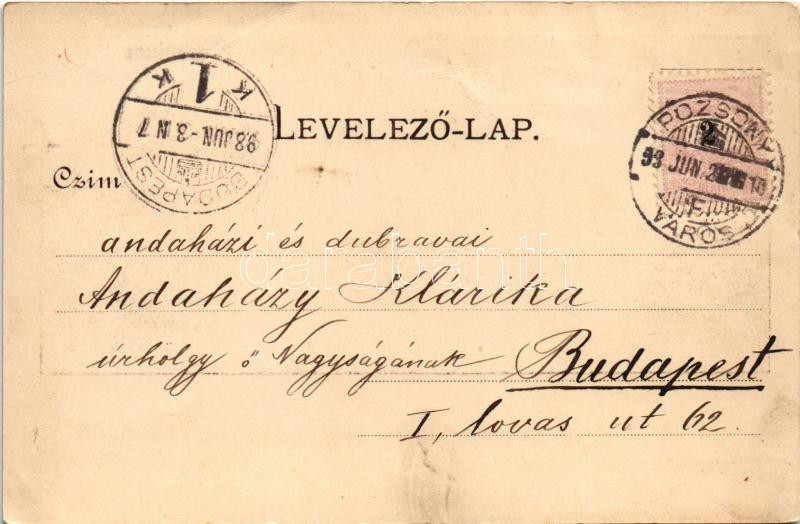 LEVELEZŐ-LAP.
BUDAPEST
98 JUN.-3. N 7
K 1 K
POZSONY
2
98 JUN. 2
VÁROS
Czim
andaházi és dubravai
Andaházy Klárika
úrhölgy ő Nagyságának
Budapest
I, lovas ut 62.
darabanth